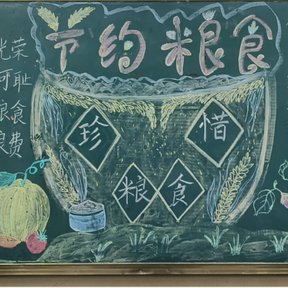 节约粮食
光荣
可耻
粮食
浪费
珍惜
粮食